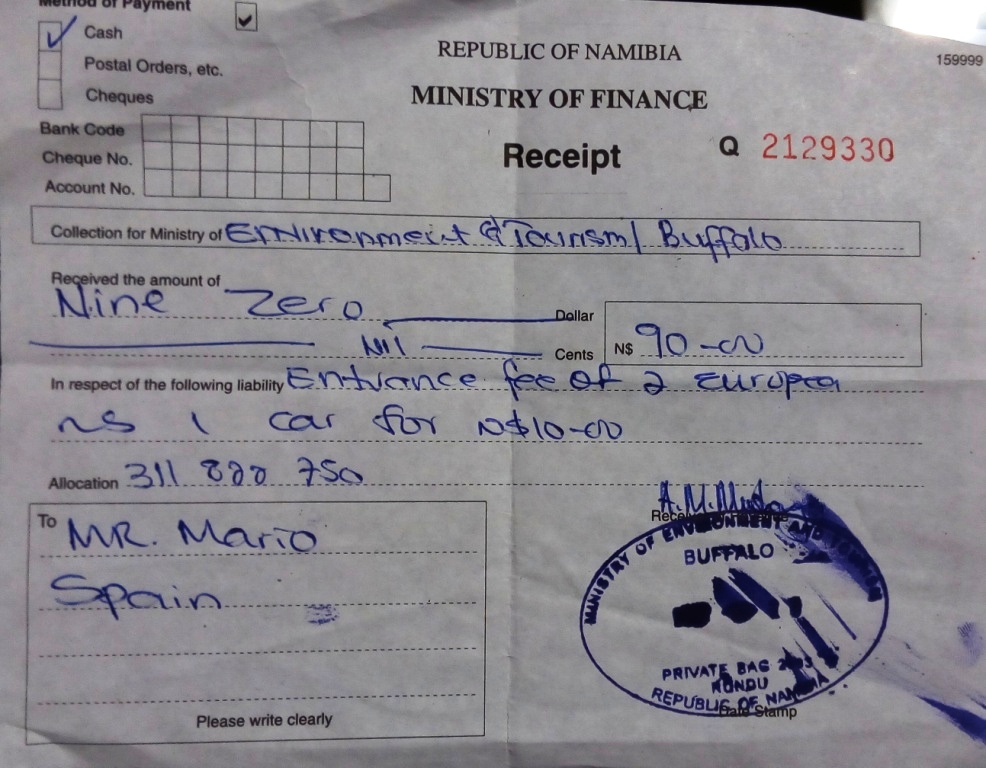 Method of Payment
Cash
Postal Orders, etc.
Cheques
REPUBLIC OF NAMIBIA
159999
MINISTRY OF FINANCE
Bank Code
Cheque No.
Account No.
Receipt Q 2129330
Collection for Ministry of Environment & Tourism/ Buffalo
Received the amount of
Nine Zero Dollar
Nil Cents
N$ 90-00
In respect of the following liability Entrance fee of 2 Europea
ns 1 car for N$10-00
Allocation 311 750
To MR. Mario
Spain
Please write clearly
MINISTRY OF ENVIRONMENT AND
BUFFALO
PRIVATE BAG
RUNDU
REPUBLIC OF NAMIBIA
Date Stamp